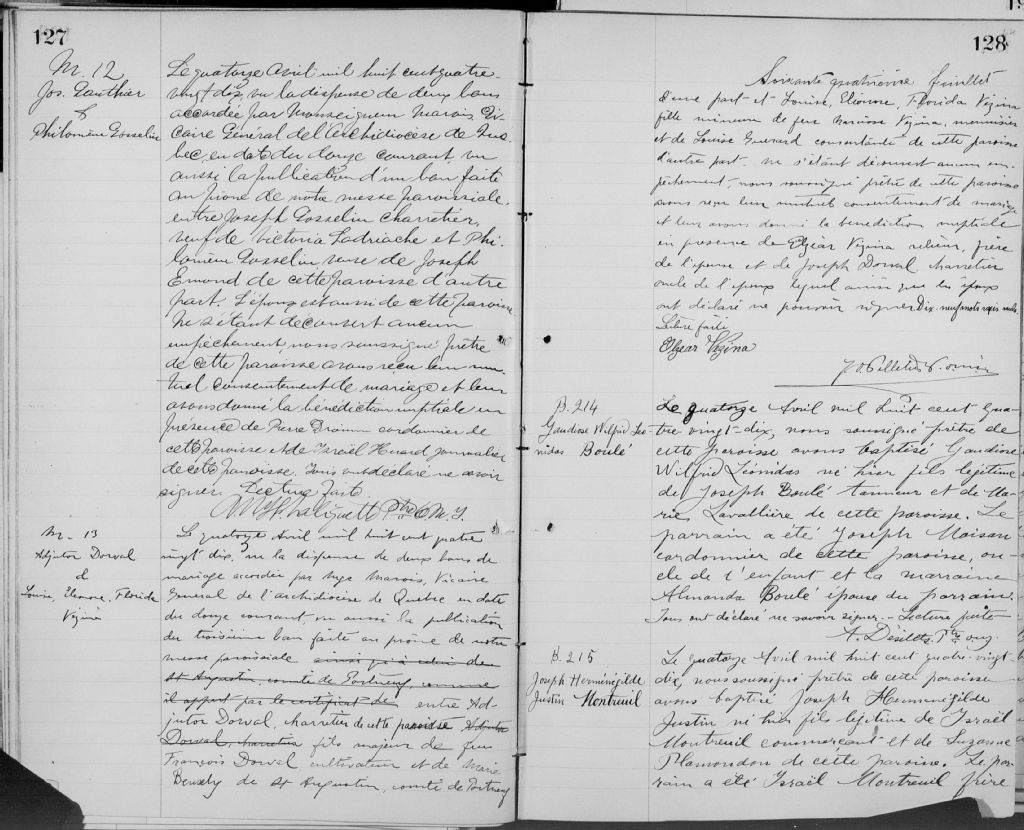 127
M. 12
Jos. Gauthier
&
Philomène Gosselin
Le quatorze Avril mil huit cent quatre-
vingt dix, vu la dispense de deux bans
accordée par Monseigneur Marois Vi-
caire Général de l'Archidiocèse de Qué-
bec, en date du douze courant, vu
aussi la publication d'un ban faite
au prône de notre messe paroissiale,
entre Joseph Gosselin charretier,
veuf de Victoria Ladriache et Phi-
lomène Gosselin, veuve de Joseph
Emond de cette paroisse d'autre
part. L'époux est aussi de cette paroisse
Ne s'étant découvert aucun
empêchement, nous soussigné prêtre
de cette paroisse avons reçu leur mu-
tuel consentement de mariage et leur
avons donné la bénédiction nuptiale en
présence de Drouin cordonnier de
cette paroisse et de Israël Huard journalier
de cette paroisse, Tous ont déclaré ne savoir
signer. Lecture faite.
Ptre O.M.I.
M - 13
Adjutor Dorval
&
Louise, Eleonore, Florida
Vézina
Le quatorze Avril mil huit cent quatre
vingt dix, vu la dispense de deux bans de
mariage accordée par Mgr Marois, Vicaire
Général de l'archidiocèse de Québec en date
du douze courant, vu aussi la publication
du troisième ban faite au prône de notre
messe paroissiale ainsi qu'à celui de
St Augustin, comté de Portneuf, comme
il appert par le certificat de entre Ad-
jutor Dorval, charretier de cette paroisse Adjutor
Dorval, charretier fils majeur de feu
François Dorval cultivateur et de Marie
de St Augustin, comté de Portneuf
128
Soixante quatrième feuillet
d'une part et Louise, Eléonore, Florida Vézina
fille mineure de feu Narcisse Vézina, menuisier
et de Louise Guérard consentante de cette paroisse
d'autre part. ne s'étant découvert aucun em-
pêchement, nous soussigné prêtre de cette paroisse
avons reçu leur mutuel consentement de mariage
et leur avons donné la bénédiction nuptiale
en présence de Elzéar Vézina relieur, frère
de l'épouse et de Joseph Dorval charretier
oncle de l'époux lequel ainsi que les époux
ont déclaré ne pouvoir signer Dix-neuf mots rayés nuls.
Lecture faite
Elzéar Vézina
B. 214
Gaudiose Wilfrid Léo
nidas Boulé
Le quatorze Avril mil huit cent qua-
tre-vingt-dix, nous soussigné prêtre de
cette paroisse avons baptisé Gaudiose
Wilfrid Léonidas né hier fils légitime
de Joseph Boulé tanneur et de Ma-
rie Lavallière de cette paroisse. Le
parrain a été Joseph Moisan
cordonnier de cette paroisse, on-
cle de l'enfant et la marraine
Almanda Boulé épouse du parrain.
Tous ont déclaré ne savoir signer. - Lecture faite
A. Désilets, Ptre
B. 215
Joseph Herménégilde
Justin Montreuil
Le quatorze Avril mil huit cent quatre-vingt-
dix, nous soussigné prêtre de cette paroisse
avons baptisé Joseph Herménégilde
Justin né hier fils légitime de Israël
Montreuil commerçant et de Suzanne
Plamondon de cette paroisse. Le par-
rain a été Israël Montreuil frère